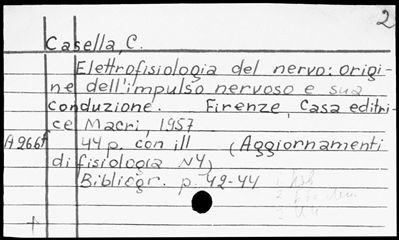 2
Casella, C.
Elettrofisiologia del nervo: origi-
ne dell'impulso nervoso e sua
conduzione. Firenze, Casa editri-
ce Macrì, 1957
A266f 44 p. con ill (Aggiornamenti
di fisiologia N4)
Bibliogr. p. 42-44